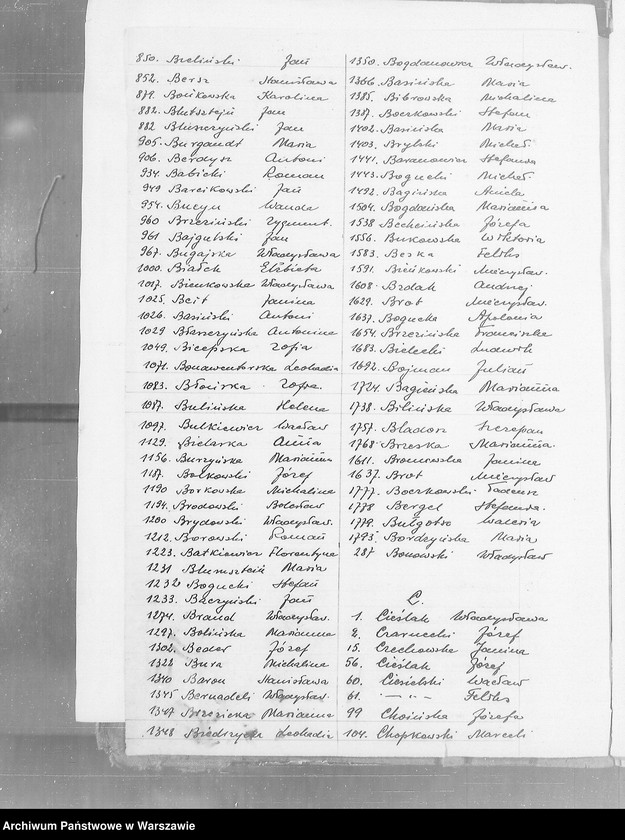 850. Bieliński Jan
852. Bersz Stanisława
879. Bońkowska Karolina
882. Blutsztejn Jan
882 Bluszczyński Jan
905. Burgandt Maria
906. Berdysz Antoni
934. Babicki Roman
949 Barcikowski Jan
954. Bucyn Wanda
960 Brzeziński Zygmunt.
961 Bajgulski Jan
967. Bugajska Władysława
1000. Białek Elżbieta
1017. Bieńkowska Władysława
1025. Beit Janina
1026. Basiński Antoni
1029 Błaszczyńska Antonina
1049. Bicepska Zofia
1071. Bonawenturska Leokadia
1083. Błocirka Zofia.
1087. Bulińska Helena
1097. Bulkiewicz Wacław
1129. Bielarka Anna
1156. Burzyńska Marianna
1187. Bolkowski Józef
1190 Borkowska Michalina
1194. Brodowski Bolesław
1200 Brydowski Władysław.
1212. Borowski Roman
1223. Batkiewicz Florentyna
1231 Blumsztein Maria
1232 Bogucki Stefan
1233. Baczyński Jan
1274. Brand Władysław.
1297. Bolińska Marianna
1302. Beder Józef
1322 Bura Michalina
1340 Baron Stanisława
1345 Bernadeli Władysław.
1347 Brzezicka Marianna
1348 Biedrzycka Leokadia
1350. Bogdanowicz Władysław.
1366. Basińska Maria
1385. Bibrowska Michalina
1387. Boczkowski Stefan
1402. Basińska Maria
1403. Brylski Michał
1441. Baranowicz Stefania
1443. Bogucki Michał
1492. Bagińska Aniela
1504. Bogdańska Marianna
1538 Bechcińska Józefa
1556. Bukowska Wiktoria
1583. Beska Feliks
1591. Bieńkowski Mieczysław.
1608. Bzdak Andrzej
1629. Brot Mieczysław.
1637. Bogucka Apolonia
1654. Brzezińska Franciszka
1683. Bielecki Ludwik
1692. Bojman Julian
1724. Bagińska Marianna
1738. Bilińska Władysława
1757. Bladosz Szczepan
1768. Brzeska Marianna.
1611. Bronowska Janina
1637. Brot Mieczysław
1777. Boczkowski Tadeusz
1778 Bergel Stefania.
1779. Bułgotko Waleria
1793. Bordzyńska Maria
287 Bonowski Władysław
C.
1. Cieślak Władysława
2. Czarnecki Józef
15. Czechowska Janina
56. Cieślak Józef
60. Ciesielski Wacław
61. — „ — Feliks
99 Choińska Józefa
104. Chopkowski Marceli
Archiwum Państwowe w Warszawie